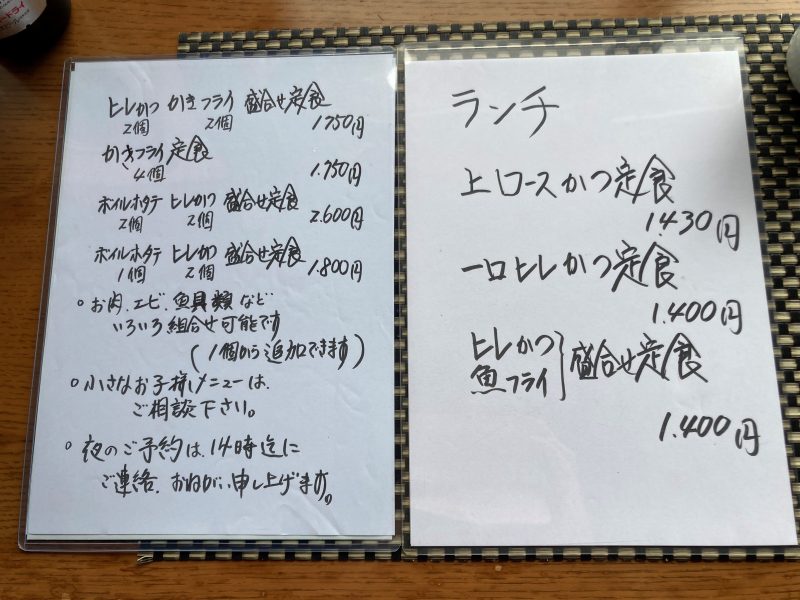 ヒレかつ かきフライ 盛合せ定食
2個 2個 1.750円
かきフライ 定食
4個 1.750円
ボイルホタテ ヒレかつ 盛合せ定食
2個 2個 2.600円
ボイルホタテ ヒレかつ 盛合せ定食
1個 2個 1.800円
○お肉、エビ、魚貝類など
いろいろ組合せ可能です
(1個から追加できます)
○小さなお子様メニューは、
ご相談下さい。
○夜のご予約は、14時迄に
ご連絡、おねがい申し上げます。
ランチ
上ロースかつ定食
1.430円
一口ヒレかつ定食
1.400円
ヒレかつ
魚フライ}盛合せ定食
1.400円